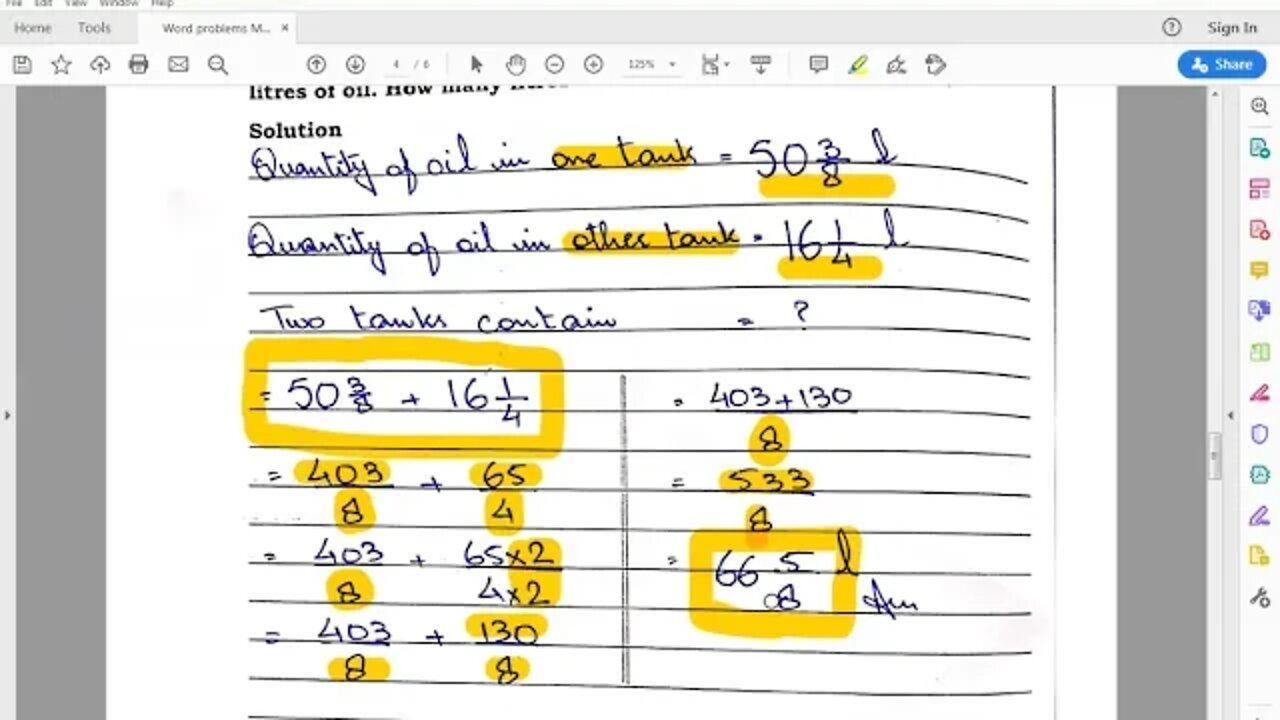 File Edit View Window Help
Home Tools Word problems M... × Sign In
4 / 6 125% Share
litres of oil. How many
Solution
Quantity of oil in one tank = 50 3/8 l
Quantity of oil in other tank = 16 1/4 l
Two tanks contain = ?
= 50 3/8 + 16 1/4
= 403/8 + 65/4
= 403/8 + 65×2/4×2
= 403/8 + 130/8
= 403+130/8
= 533/8
= 66 5/8 l Ans